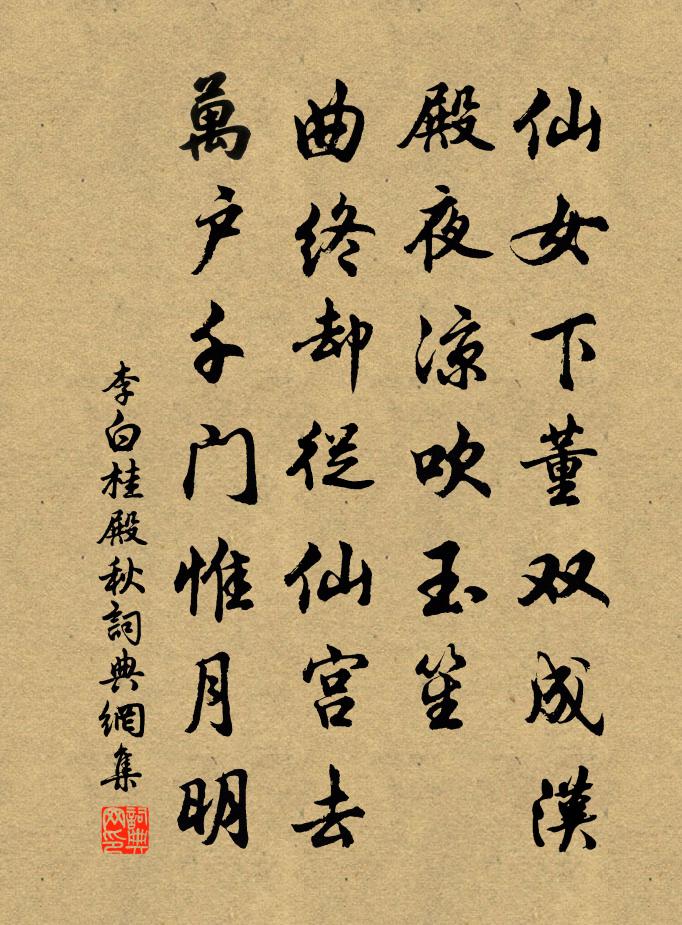 仙女下董双成漢
殿夜凉吹玉笙
曲终却從仙宫去
萬户千门惟月明
李白桂殿秋詞典網集
詞典网印